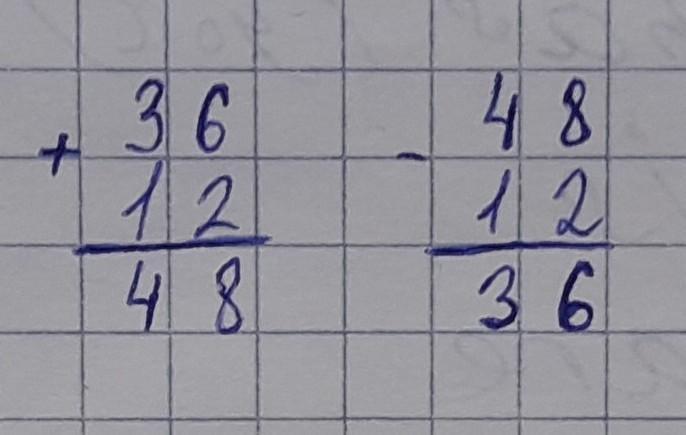 + 36
12
48
- 48
12
36